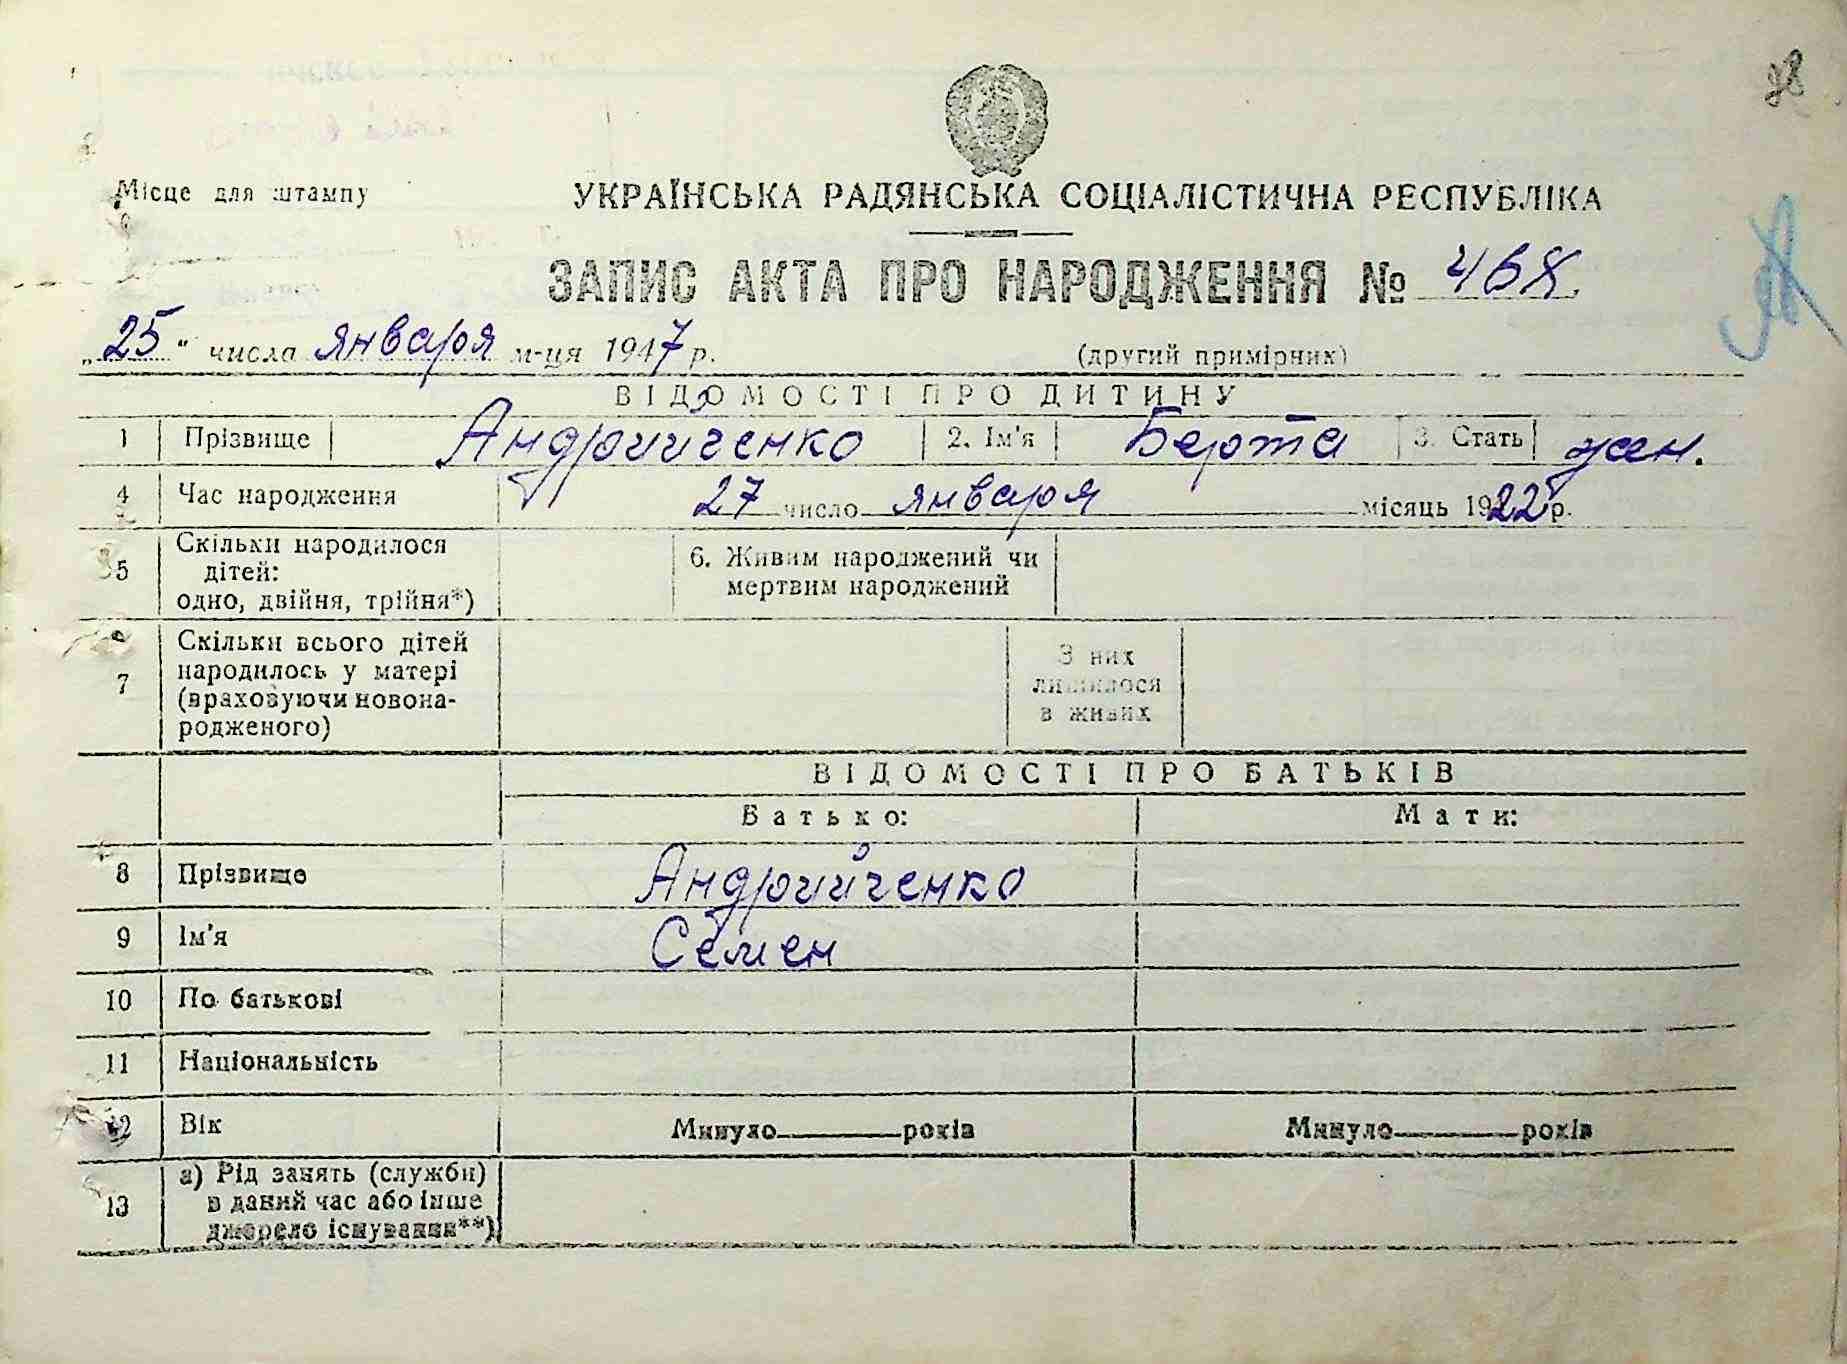 Місце для штампу
УКРАЇНСЬКА РАДЯНСЬКА СОЦІАЛІСТИЧНА РЕСПУБЛІКА
ЗАПИС АКТА ПРО НАРОДЖЕННЯ № 468
„25" числа января м-ця 1947 р.
(другий примірник)
ВІДОМОСТІ ПРО ДИТИНУ
1 Прізвище Андрийченко 2. Ім'я Берта 3. Стать жен.
4 Час народження 27 число января місяць 1922 р.
5 Скільки народилося дітей: одно, двійня, трійня*) 6. Живим народжений чи мертвим народжений
7 Скільки всього дітей народилось у матері (враховуючи новонародженого) З них лишилося в живих
ВІДОМОСТІ ПРО БАТЬКІВ
Батько: Мати:
8 Прізвище Андрийченко
9 Ім'я Семен
10 По батькові
11 Національність
12 Вік Минуло років Минуло років
13 а) Рід занять (служби) в даний час або інше джерело існування**)